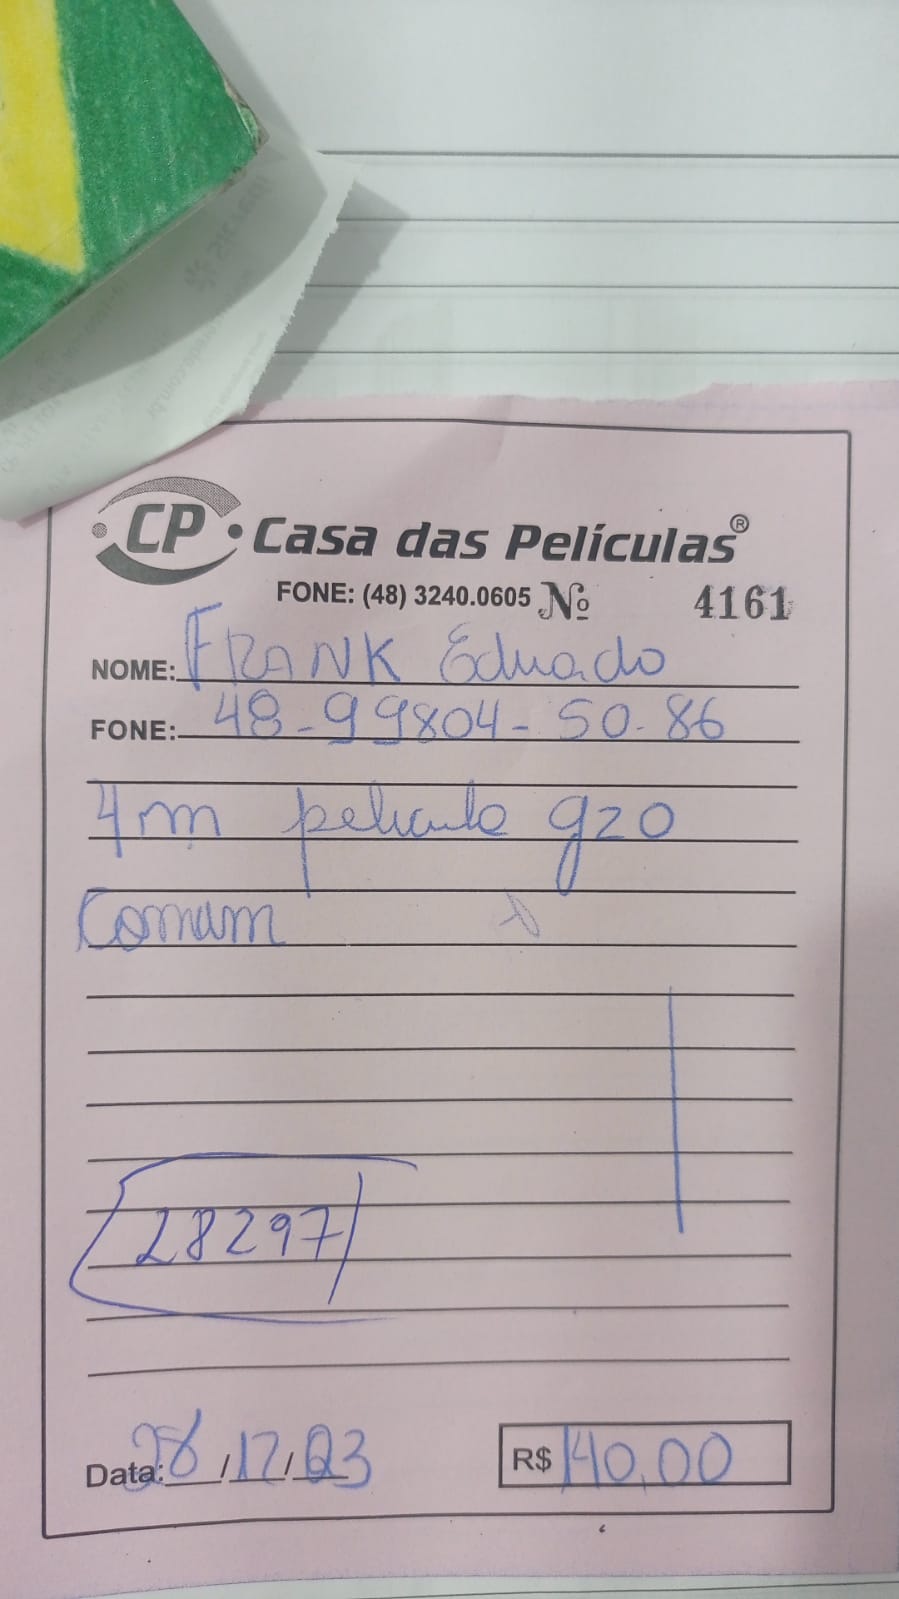 CP Casa das Películas®
FONE: (48) 3240.0605 Nº 4161
NOME: FRANK Eduado
FONE: 48-99804-50-86
4m pelicula g20
Comum
28297
Data: 28/12/23 R$ 140,00